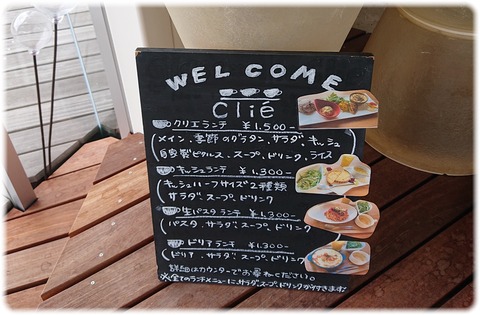 WELCOME
Clié
クリエランチ ¥1.500-
メイン、季節のグラタン、サラダ、キッシュ
自家製ピクルス、スープ、ドリンク、ライス
キッシュランチ ¥1.300-
キッシュハーフサイズ2種類
サラダ、スープ、ドリンク
生パスタランチ ¥1.300-
パスタ、サラダ、スープ、ドリンク
ドリアランチ ¥1.300-
ドリア、サラダ、スープ、ドリンク
詳細はカウンターでお尋ねください。
※全てのランチメニューに、サラダ、スープ、ドリンクが付きます!